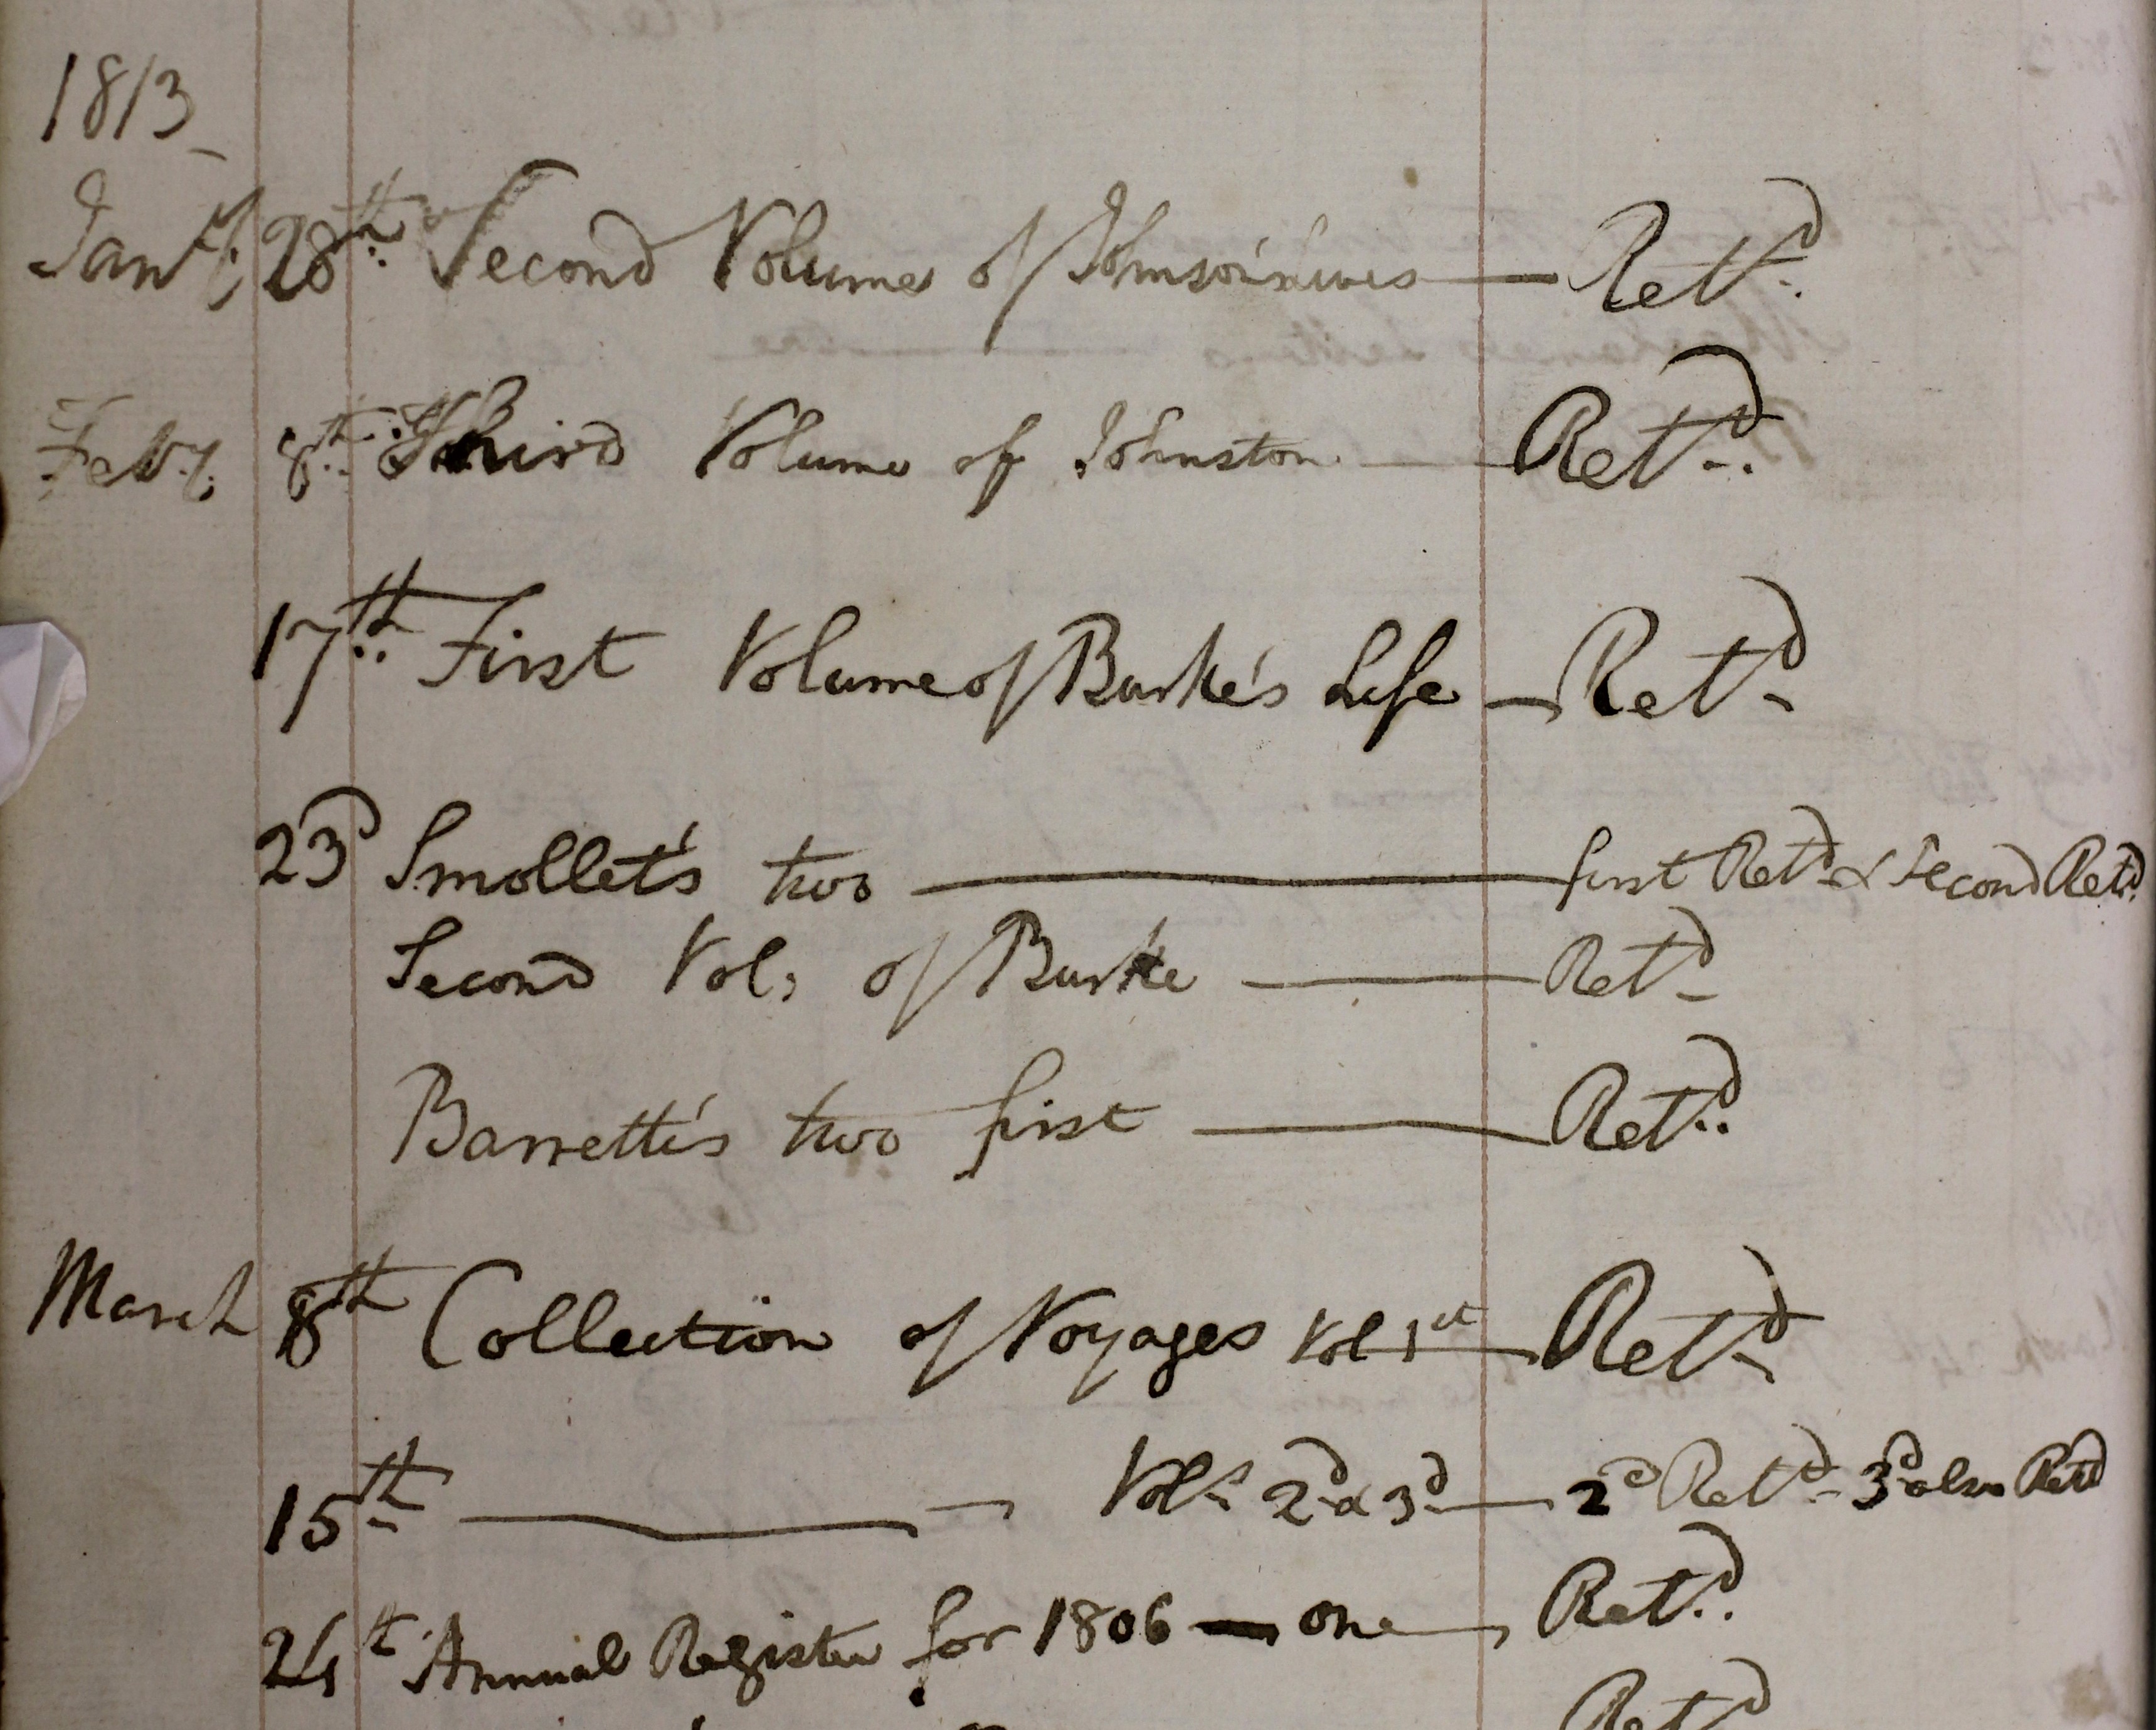 1813
Jany. 28th. Second Volume of Johnson's Lives — Retd.
Feby. 8th. Third Volume of Johnston — Retd.
17th. First Volume of Burke's Life — Retd
23d Smollet's two — first Retd & Second Retd.
Second Vol: of Burke — Retd
Barretti's two first — Retd.
March 8th Collection of Voyages Vol 1st — Retd
15th — Vols 2d & 3d — 2d Retd - 3d also Retd
24th. Annual Register for 1806 — one — Retd.
Retd